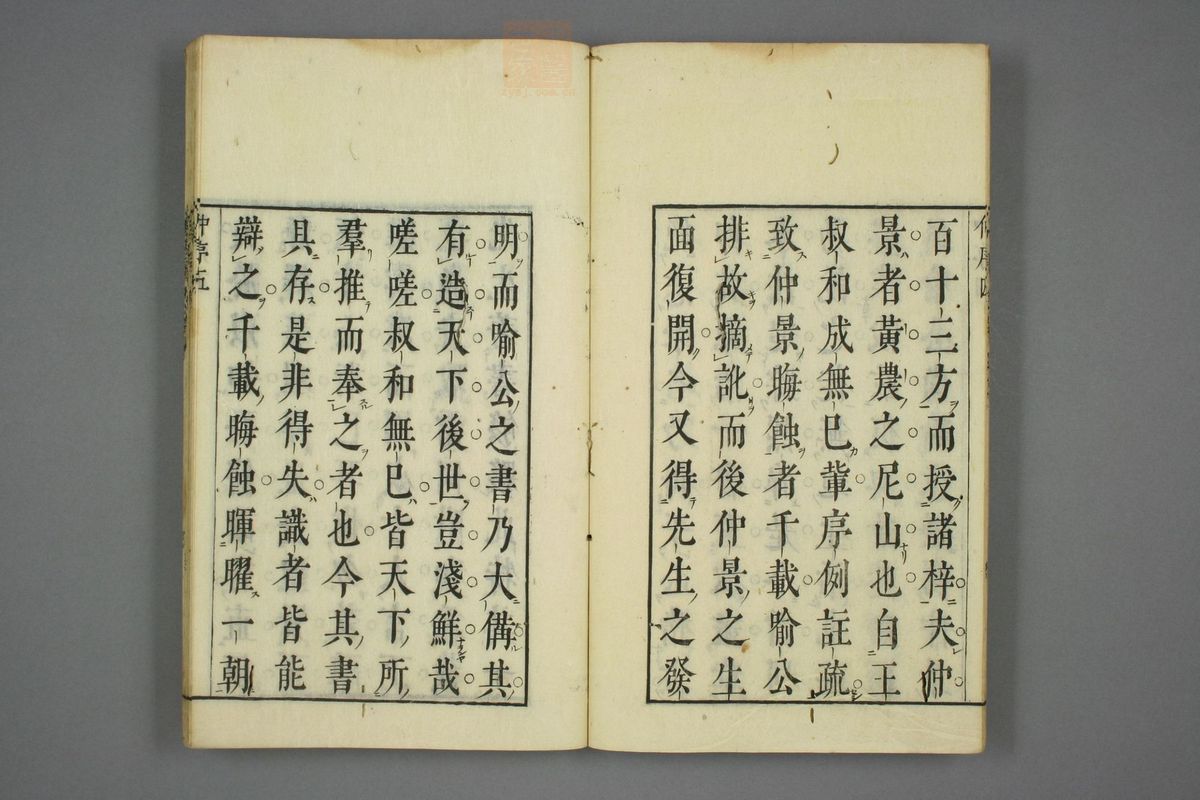 百十三方而授諸梓夫仲
景者黃農之尼山也自王
叔和成無已輩序例註疏
致仲景晦蝕者千載喻公
排故摘訛而後仲景之生
面復開今又得先生之發
明而喻公之書乃大備其
有造天下後世豈淺鮮哉
嗟嗟叔和無已皆天下所
羣推而奉之者也今其書
具存是非得失識者皆能
辯之千載晦蝕暉曜一朝
仲序五
zysj.com.cn